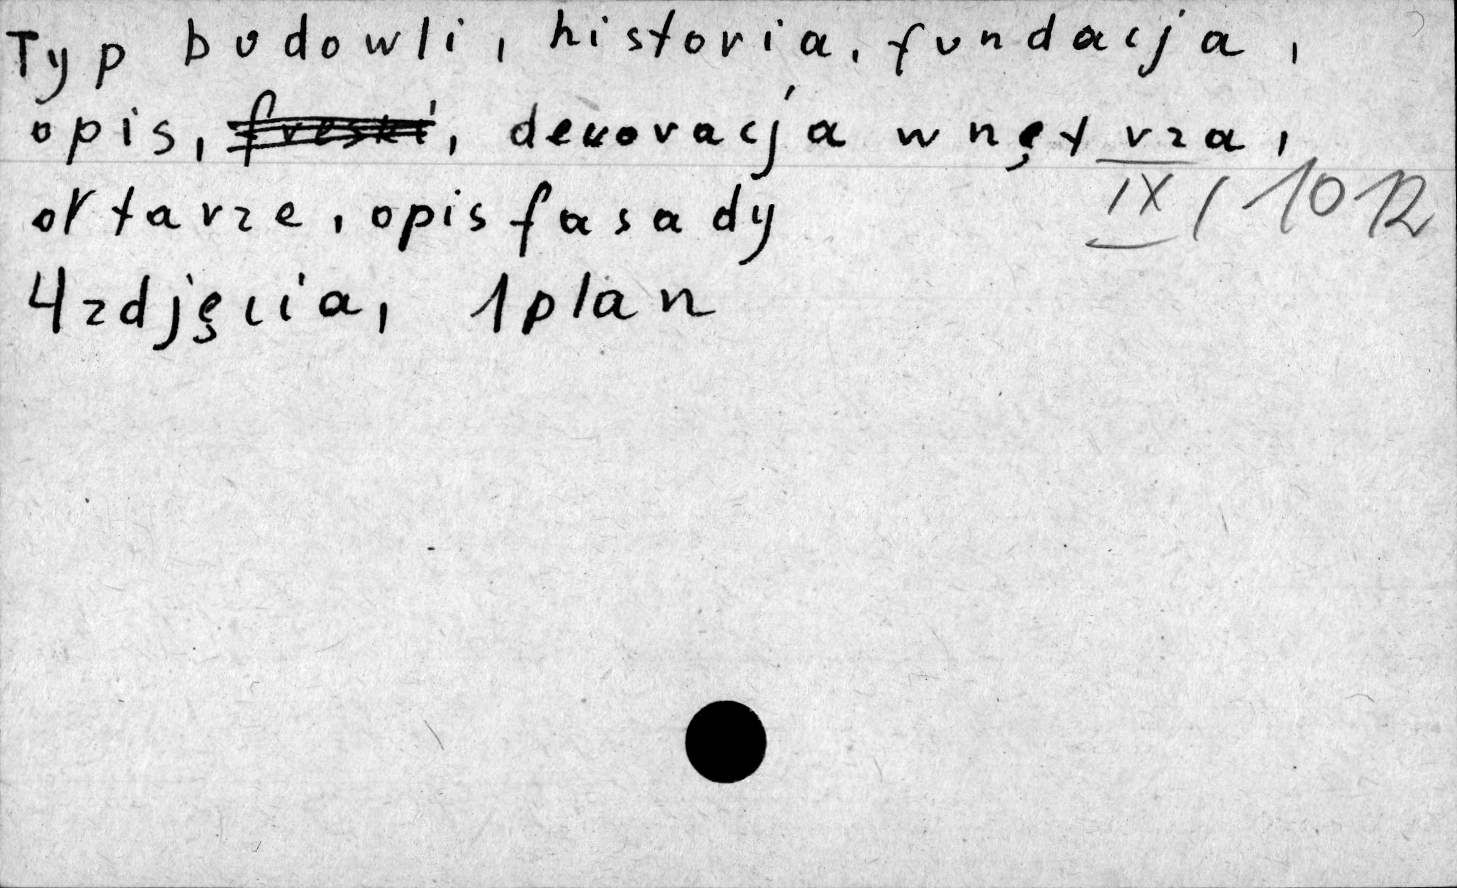 Typ budowli, historia, fundacja,
opis, freski, dekoracja wnętrza,
ołtarze, opis fasady
IX/1012
4 zdjęcia, 1 plan